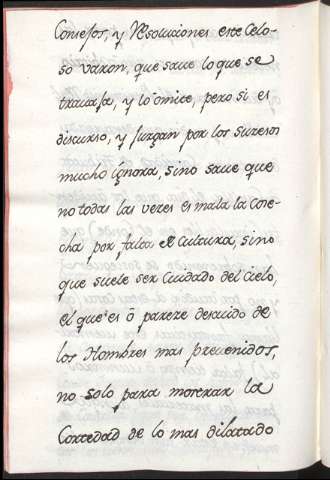 Consejos, y Resoluciones este Celo-
so varon, que save lo que se
travaja, y lo omite, pero si es
discurso, y juzgan por los sucesos
mucho ignora, sino save que
no todas las veces es mala la cose-
cha por falta de Cultura, sino
que suele ser Cuidado del cielo,
el que es ō pareze descuido de
los Hombres mas prevenidos,
no solo para moterar la
Cortedad de lo mas dilatado